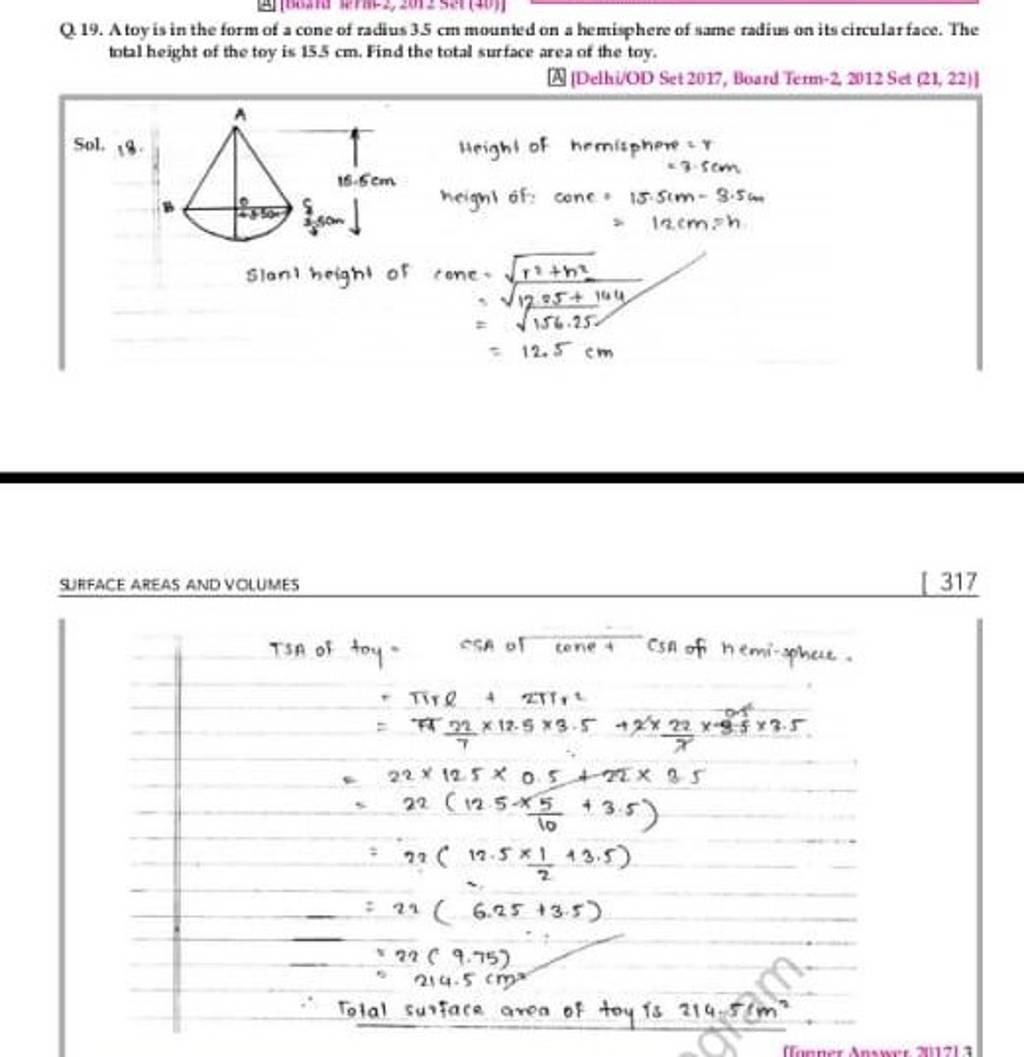 A [Board Term-2, 2012 Set (40)]
Q. 19. A toy is in the form of a cone of radius 3.5 cm mounted on a hemisphere of same radius on its circular face. The
total height of the toy is 15.5 cm. Find the total surface area of the toy.
A [Delhi/OD Set 2017, Board Term-2, 2012 Set (21, 22)]
Sol. 18.
A
B
15.5cm
3.5cm
Height of hemisphere = r
= 3.5cm
height of cone = 15.5cm - 3.5cm
= 12cm = h.
Slant height of cone = √r² + h²
= √12.25 + 144
= √156.25
= 12.5 cm
SURFACE AREAS AND VOLUMES
[ 317
TSA of toy = CSA of cone + CSA of hemi-sphere.
= πrl + 2πr²
= 22/7 × 12.5 × 3.5 + 2 × 22/7 × 3.5 × 3.5
= 22 × 12.5 × 0.5 + 22 × 3.5
= 22 ( 12.5 × 5/10 + 3.5 )
= 22 ( 12.5 × 1/2 + 3.5)
= 22 ( 6.25 + 3.5)
= 22 ( 9.75)
= 214.5 cm²
∴ Total surface area of toy is 214.5 cm²
gram.
[Topper Answer, 2017] 3